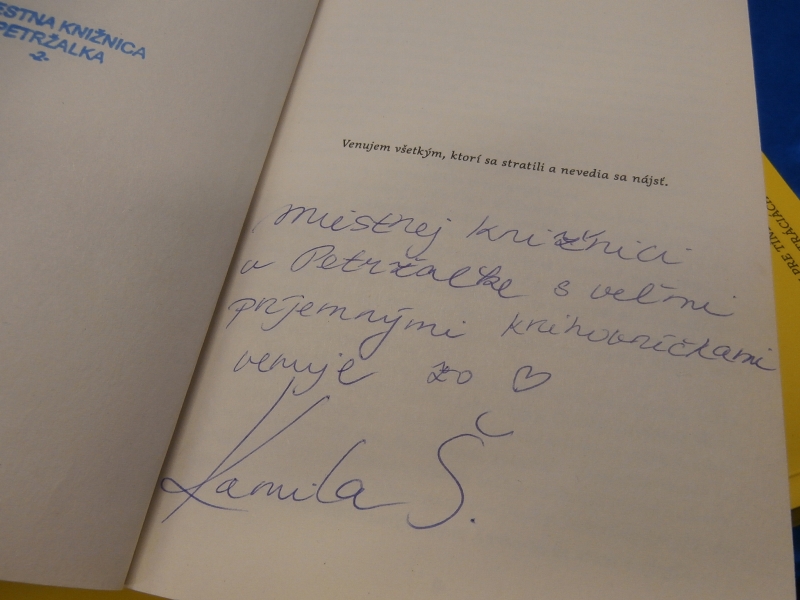 ESTNA KNIŽNICA
PETRŽALKA
-2-
Venujem všetkým, ktorí sa stratili a nevedia sa nájsť.
miestnej knižnici
v Petržalke s veľmi
príjemnými knihovníčkami
venuje zo ♡
Kamila Š.
PRE TÍN